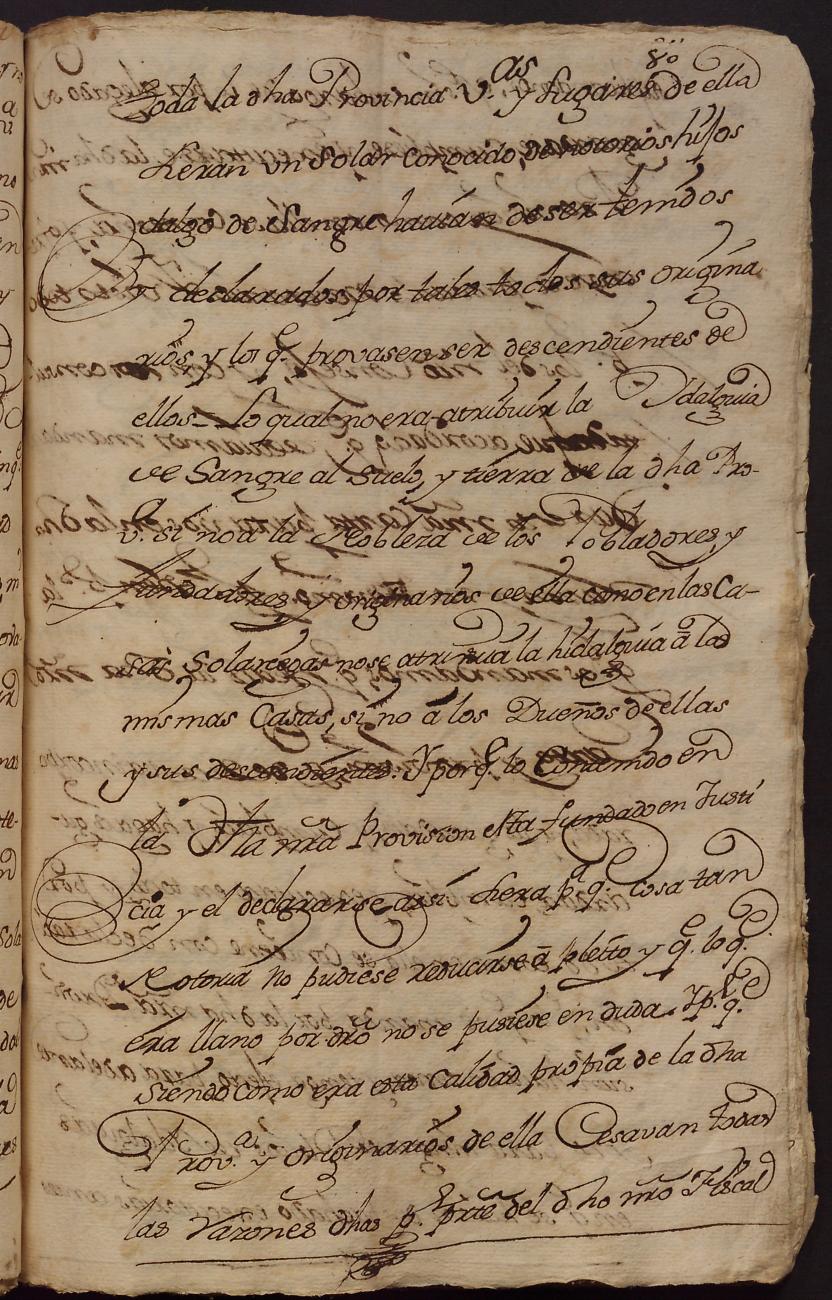 80
toda la dha Provincia V.as y Lugares de ella
heran vn Solar conocido, de notorios hijos
dalgo de Sangre hauian de ser tenidos
y declarados por tales todos sus origina
rios y los q.e provasen ser descendientes de
ellos = Lo qual no era atribuir la Ydalguia
de Sangre al Suelo, y tierra de la dha Pro-
v.a sino a la Nobleza de los Pobladores, y
fundadores y originarios de ella como en las Ca-
sas Solariegas no se atribuia la hidalguia â las
mismas Casas, sino â los Dueños de ellas
y sus descendientes. Y porq.e lo Contenido en
la dha nrâ Provision esta fundado en Justi
cia y el declararse assi hera p.a q.e cosa tan
Notoria no pudiese reducirse â pleito y q.e lo q.e
era llano por drô no se pusiese en duda. Y p.r q.e
siendo como era esta Calidad propia de la dha
Prov.a y originarios de ella Cesavan todas
las Razones dhas p.r prte del dho nrô Fiscal